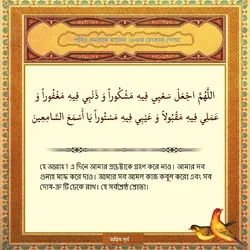 পবিত্র রমজান মাসের ২৬তম রোজার দোয়া
اللَّهُمَّ اجْعَلْ سَعْيِي فِيهِ مَشْكُوراً وَ ذَنْبِي فِيهِ مَغْفُوراً وَ
عَمَلِي فِيهِ مَقْبُولاً وَ عَيْبِي فِيهِ مَسْتُوراً يَا أَسْمَعَ السَّامِعِينَ
হে আল্লাহ ! এ দিনে আমার প্রচেষ্টাকে গ্রহণ করে নাও। আমার সব
গুনাহ মাফ করে দাও। আমার সব আমল কাজ কবুল করো এবং সব
দোষ-ত্রুটি ঢেকে রাখ। হে সর্বশ্রেষ্ঠ শ্রোতা।